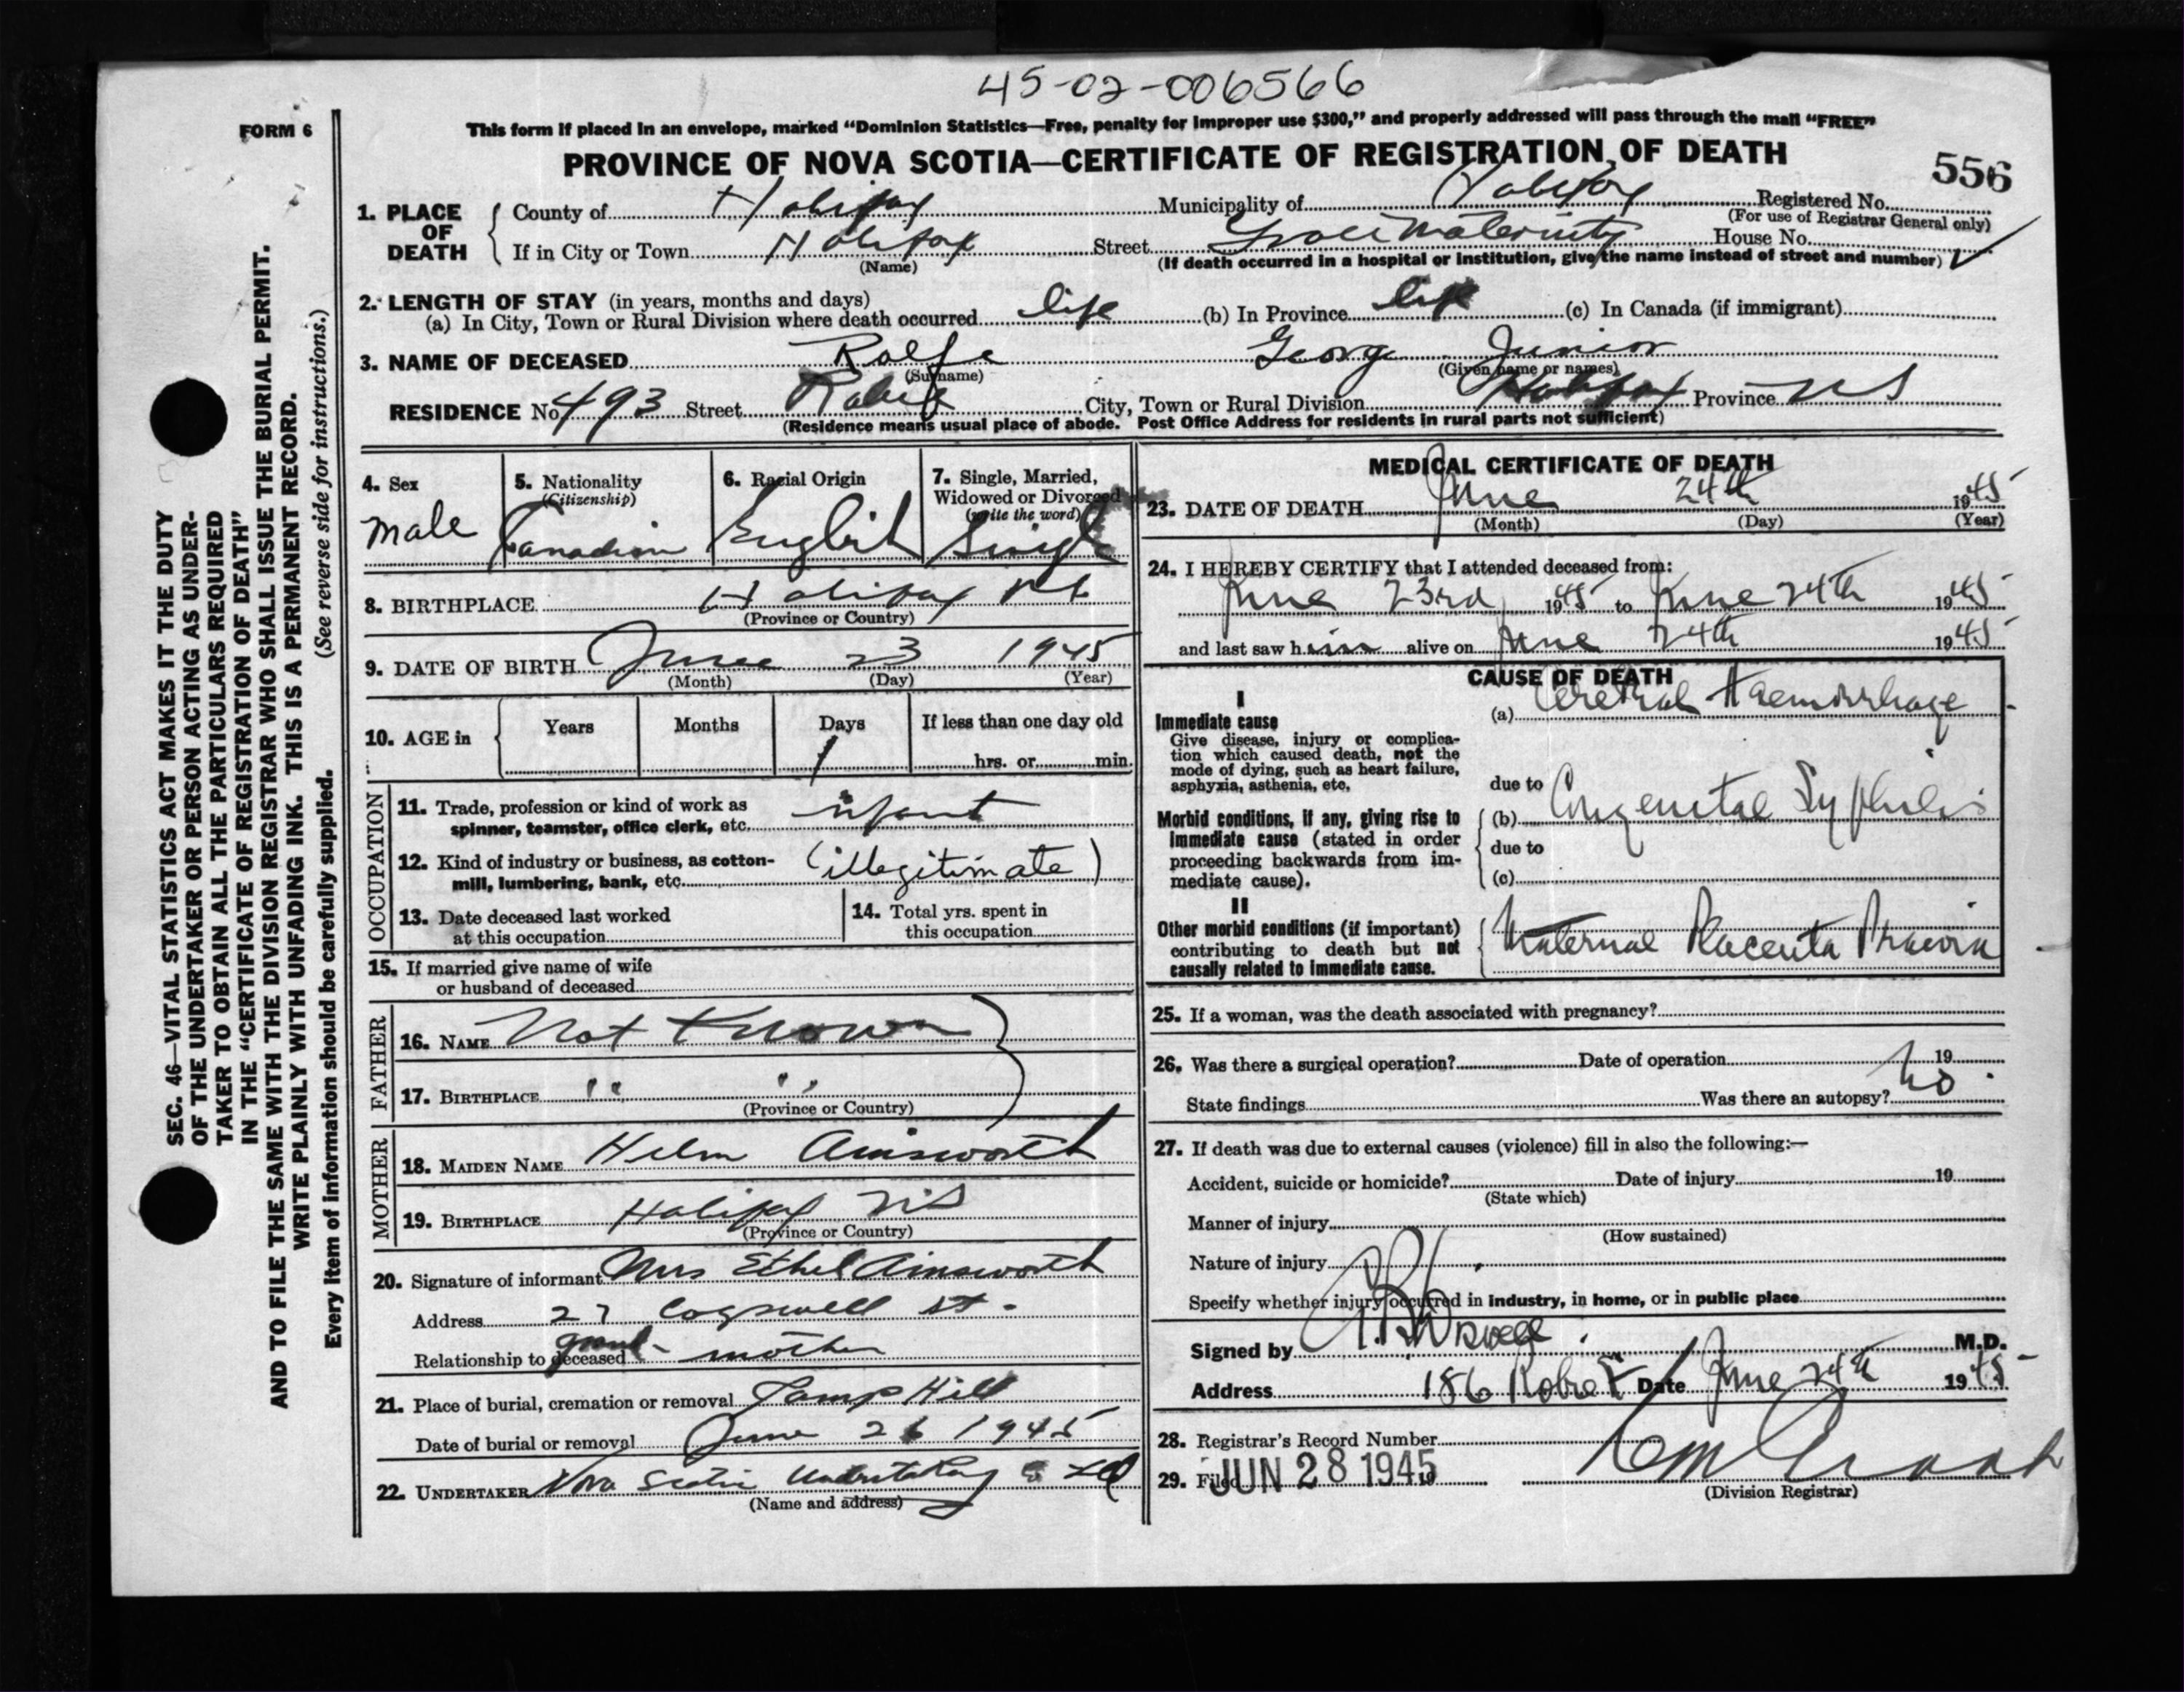 45-02-006566
FORM 6
This form if placed in an envelope, marked “Dominion Statistics—Free, penalty for improper use $300,” and properly addressed will pass through the mail “FREE”
PROVINCE OF NOVA SCOTIA—CERTIFICATE OF REGISTRATION OF DEATH
556
1. PLACE OF DEATH
County of Halifax Municipality of Halifax Registered No.
(For use of Registrar General only)
If in City or Town Halifax Street Grace Maternity House No.
(Name) (If death occurred in a hospital or institution, give the name instead of street and number)
2. LENGTH OF STAY (in years, months and days)
(a) In City, Town or Rural Division where death occurred life (b) In Province life (c) In Canada (if immigrant)
3. NAME OF DECEASED Rolfe George Junior
(Surname) (Given name or names)
RESIDENCE No. 493 Street City, Town or Rural Division Halifax Province NS
(Residence means usual place of abode. Post Office Address for residents in rural parts not sufficient)
4. Sex
male
5. Nationality
(Citizenship)
Canadian
6. Racial Origin
English
7. Single, Married,
Widowed or Divorced
(write the word)
Single
8. BIRTHPLACE Halifax
(Province or Country)
9. DATE OF BIRTH June 23 1945
(Month) (Day) (Year)
10. AGE in
Years Months Days If less than one day old
1 hrs. or min.
OCCUPATION
11. Trade, profession or kind of work as
spinner, teamster, office clerk, etc. infant
12. Kind of industry or business, as cotton-
mill, lumbering, bank, etc. (illegitimate)
13. Date deceased last worked
at this occupation
14. Total yrs. spent in
this occupation
15. If married give name of wife
or husband of deceased
FATHER
16. NAME Not Known
17. BIRTHPLACE " "
(Province or Country)
MOTHER
18. MAIDEN NAME Ainsworth
19. BIRTHPLACE Halifax NS
(Province or Country)
20. Signature of informant Mrs Ethel Ainsworth
Address 27 Cogswell St.
Relationship to deceased grand-mother
21. Place of burial, cremation or removal Camp Hill
Date of burial or removal June 26 1945
22. UNDERTAKER Nova Scotia Undertaking Co Ltd
(Name and address)
MEDICAL CERTIFICATE OF DEATH
23. DATE OF DEATH June 24th 1945
(Month) (Day) (Year)
24. I HEREBY CERTIFY that I attended deceased from:
June 23rd 1945 to June 24th 1945
and last saw him alive on June 24th 1945
CAUSE OF DEATH
I
Immediate cause
Give disease, injury or complica-
tion which caused death, not the
mode of dying, such as heart failure,
asphyxia, asthenia, etc.
(a) Cerebral Haemorrhage
due to
Morbid conditions, if any, giving rise to
immediate cause (stated in order
proceeding backwards from im-
mediate cause).
(b) Congenital Syphilis
due to
(c)
II
Other morbid conditions (if important)
contributing to death but not
causally related to immediate cause.
Maternal Placenta Praevia
25. If a woman, was the death associated with pregnancy?
26. Was there a surgical operation? Date of operation 19
State findings Was there an autopsy? No
27. If death was due to external causes (violence) fill in also the following:—
Accident, suicide or homicide? Date of injury 19
(State which)
Manner of injury
(How sustained)
Nature of injury
Specify whether injury occurred in industry, in home, or in public place
Signed by M.D.
Address 186 Robie St Date June 24th 1945
28. Registrar's Record Number
29. Filed JUN 28 1945 19
(Division Registrar)
SEC. 46—VITAL STATISTICS ACT MAKES IT THE DUTY
OF THE UNDERTAKER OR PERSON ACTING AS UNDER-
TAKER TO OBTAIN ALL THE PARTICULARS REQUIRED
IN THE “CERTIFICATE OF REGISTRATION OF DEATH”
AND TO FILE THE SAME WITH THE DIVISION REGISTRAR WHO SHALL ISSUE THE BURIAL PERMIT.
WRITE PLAINLY WITH UNFADING INK. THIS IS A PERMANENT RECORD.
Every item of information should be carefully supplied. (See reverse side for instructions.)